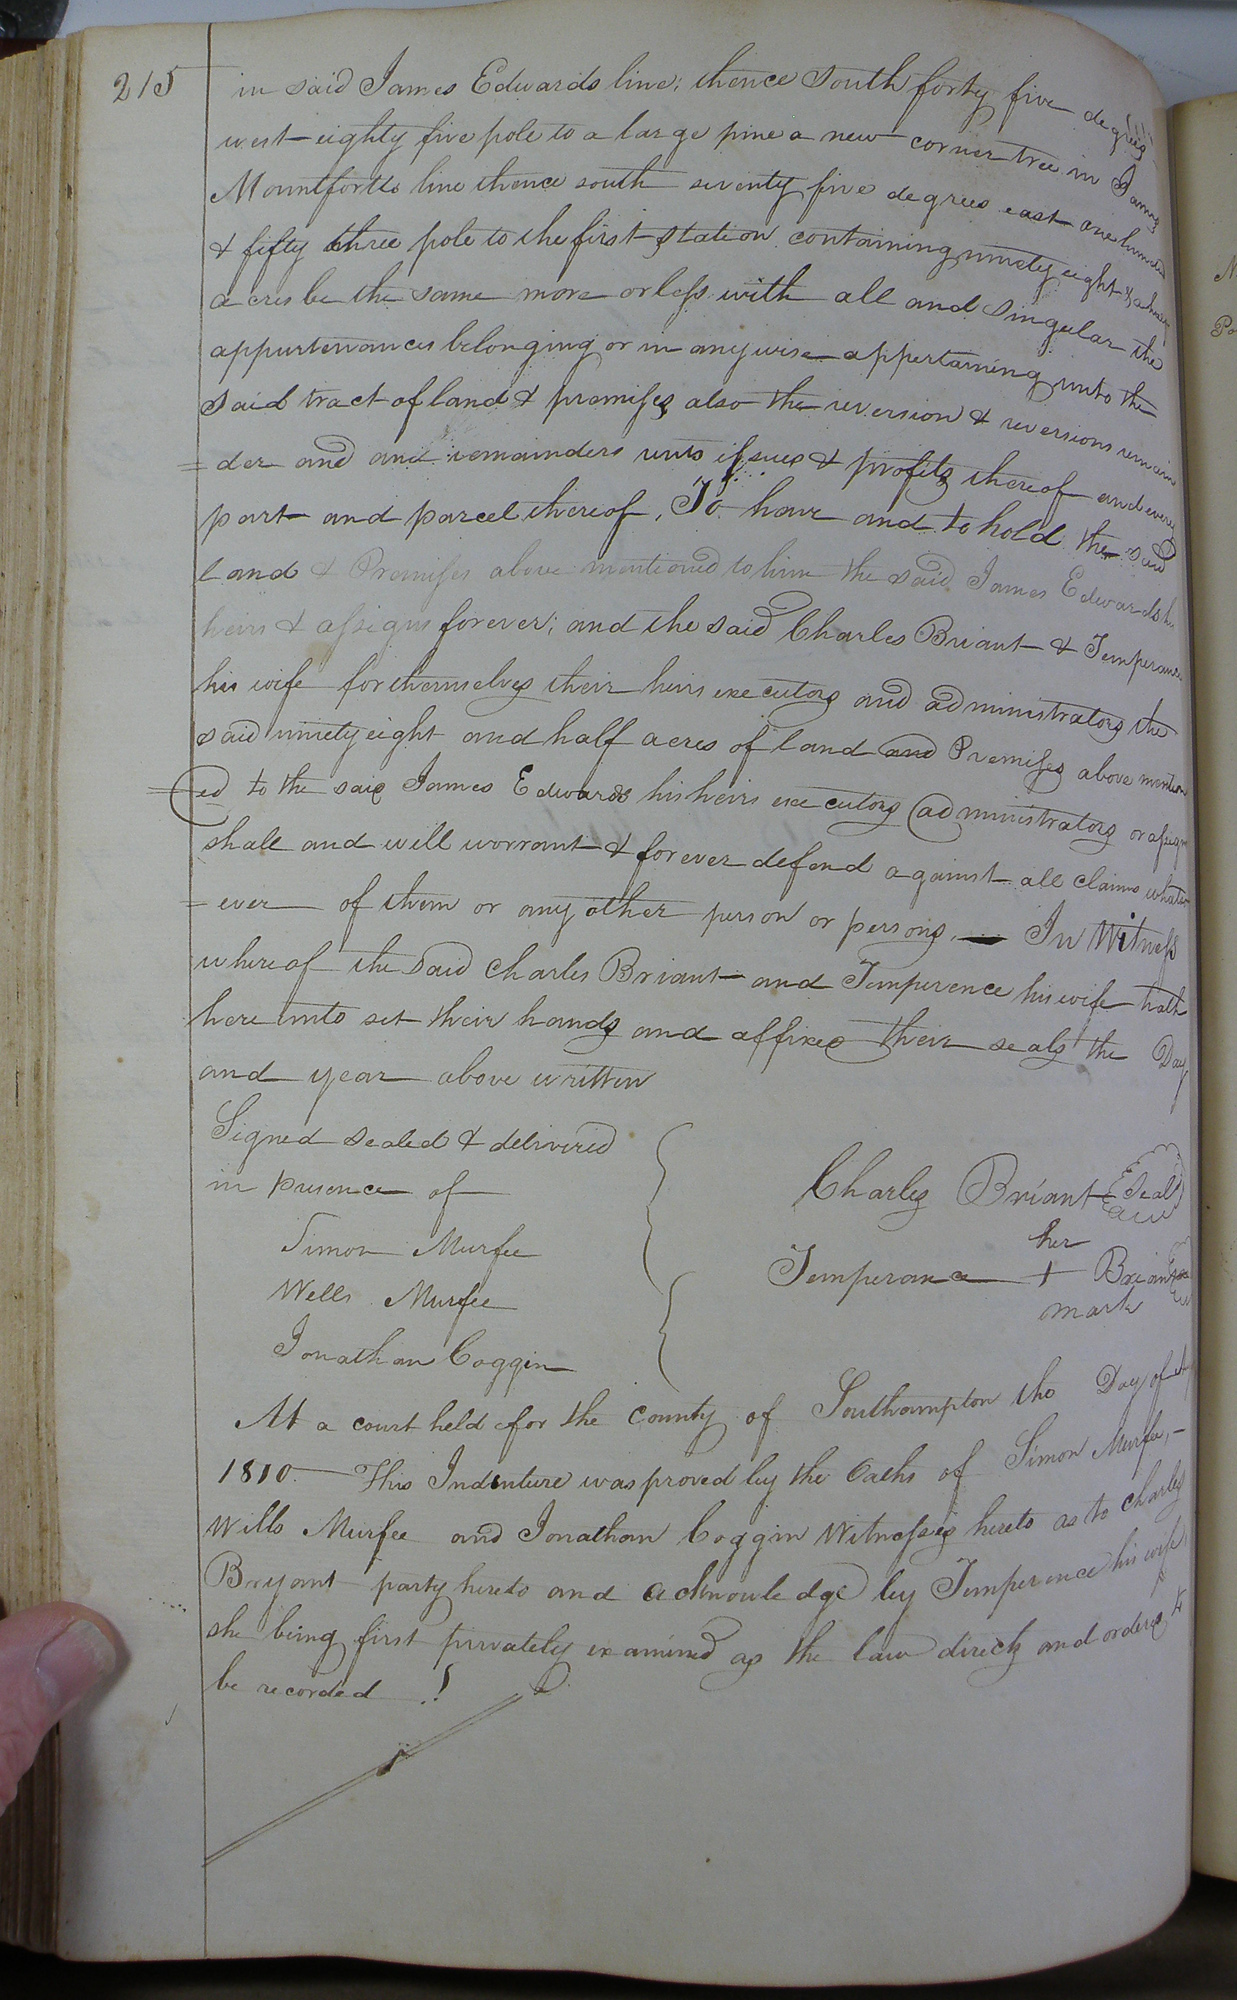 215
in said James Edwards line; thence South forty five degrees
west eighty five pole to a large pine a new corner tree in James
Mountfortts line thence south seventy five degrees east one hundred
& fifty three pole to the first station containing ninety eight & a half
acres be the same more or less with all and singular the
appurtenances belonging or in anywise appertaining unto the
said tract of land & premises also the reversion & reversions remain
=der and and remainders unto issues & profits thereof and every
part and parcel thereof, To have and to hold the said
land & Premises above mentioned to him the said James Edwards his
heirs & assigns forever; and the said Charles Briant & Temperance
his wife for themselves their heirs executors and administrators the
said ninety eight and half acres of land and Premises above mention
=ed to the said James Edwards his heirs executors administrators or assigns
shall and will worrant & forever defend against all claims whatso
=ever of them or any other person or persons. — In Witness
whereof the said Charles Briant and Temperence his wife hath
here unto set their hands and affixed their seals the Day
and year above written
Signed sealed & delivered
in presence of
Simon Murfee
Wells Murfee
Jonathan Coggin
Charles Briant Seal
her
Temperance + Briant
mark
At a court held for the county of Southampton the Day of
1810. — This Indenture was proved by the Oaths of Simon Murfee, —
Wills Murfee and Jonathan Coggin Witnesses hereto as to Charles
Bryant party hereto and acknowledge by Temperence his wife
she being first privately examined as the law directs and ordered to
be recorded .!